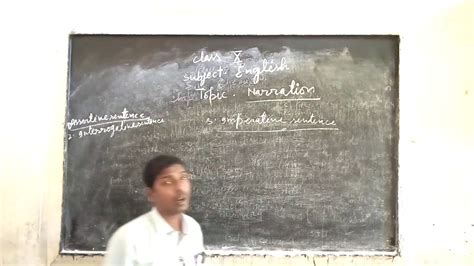 class X
Subject- English
Topic- Narration
Assertive sentence
2. Interrogative sentence
3. Imperative sentence